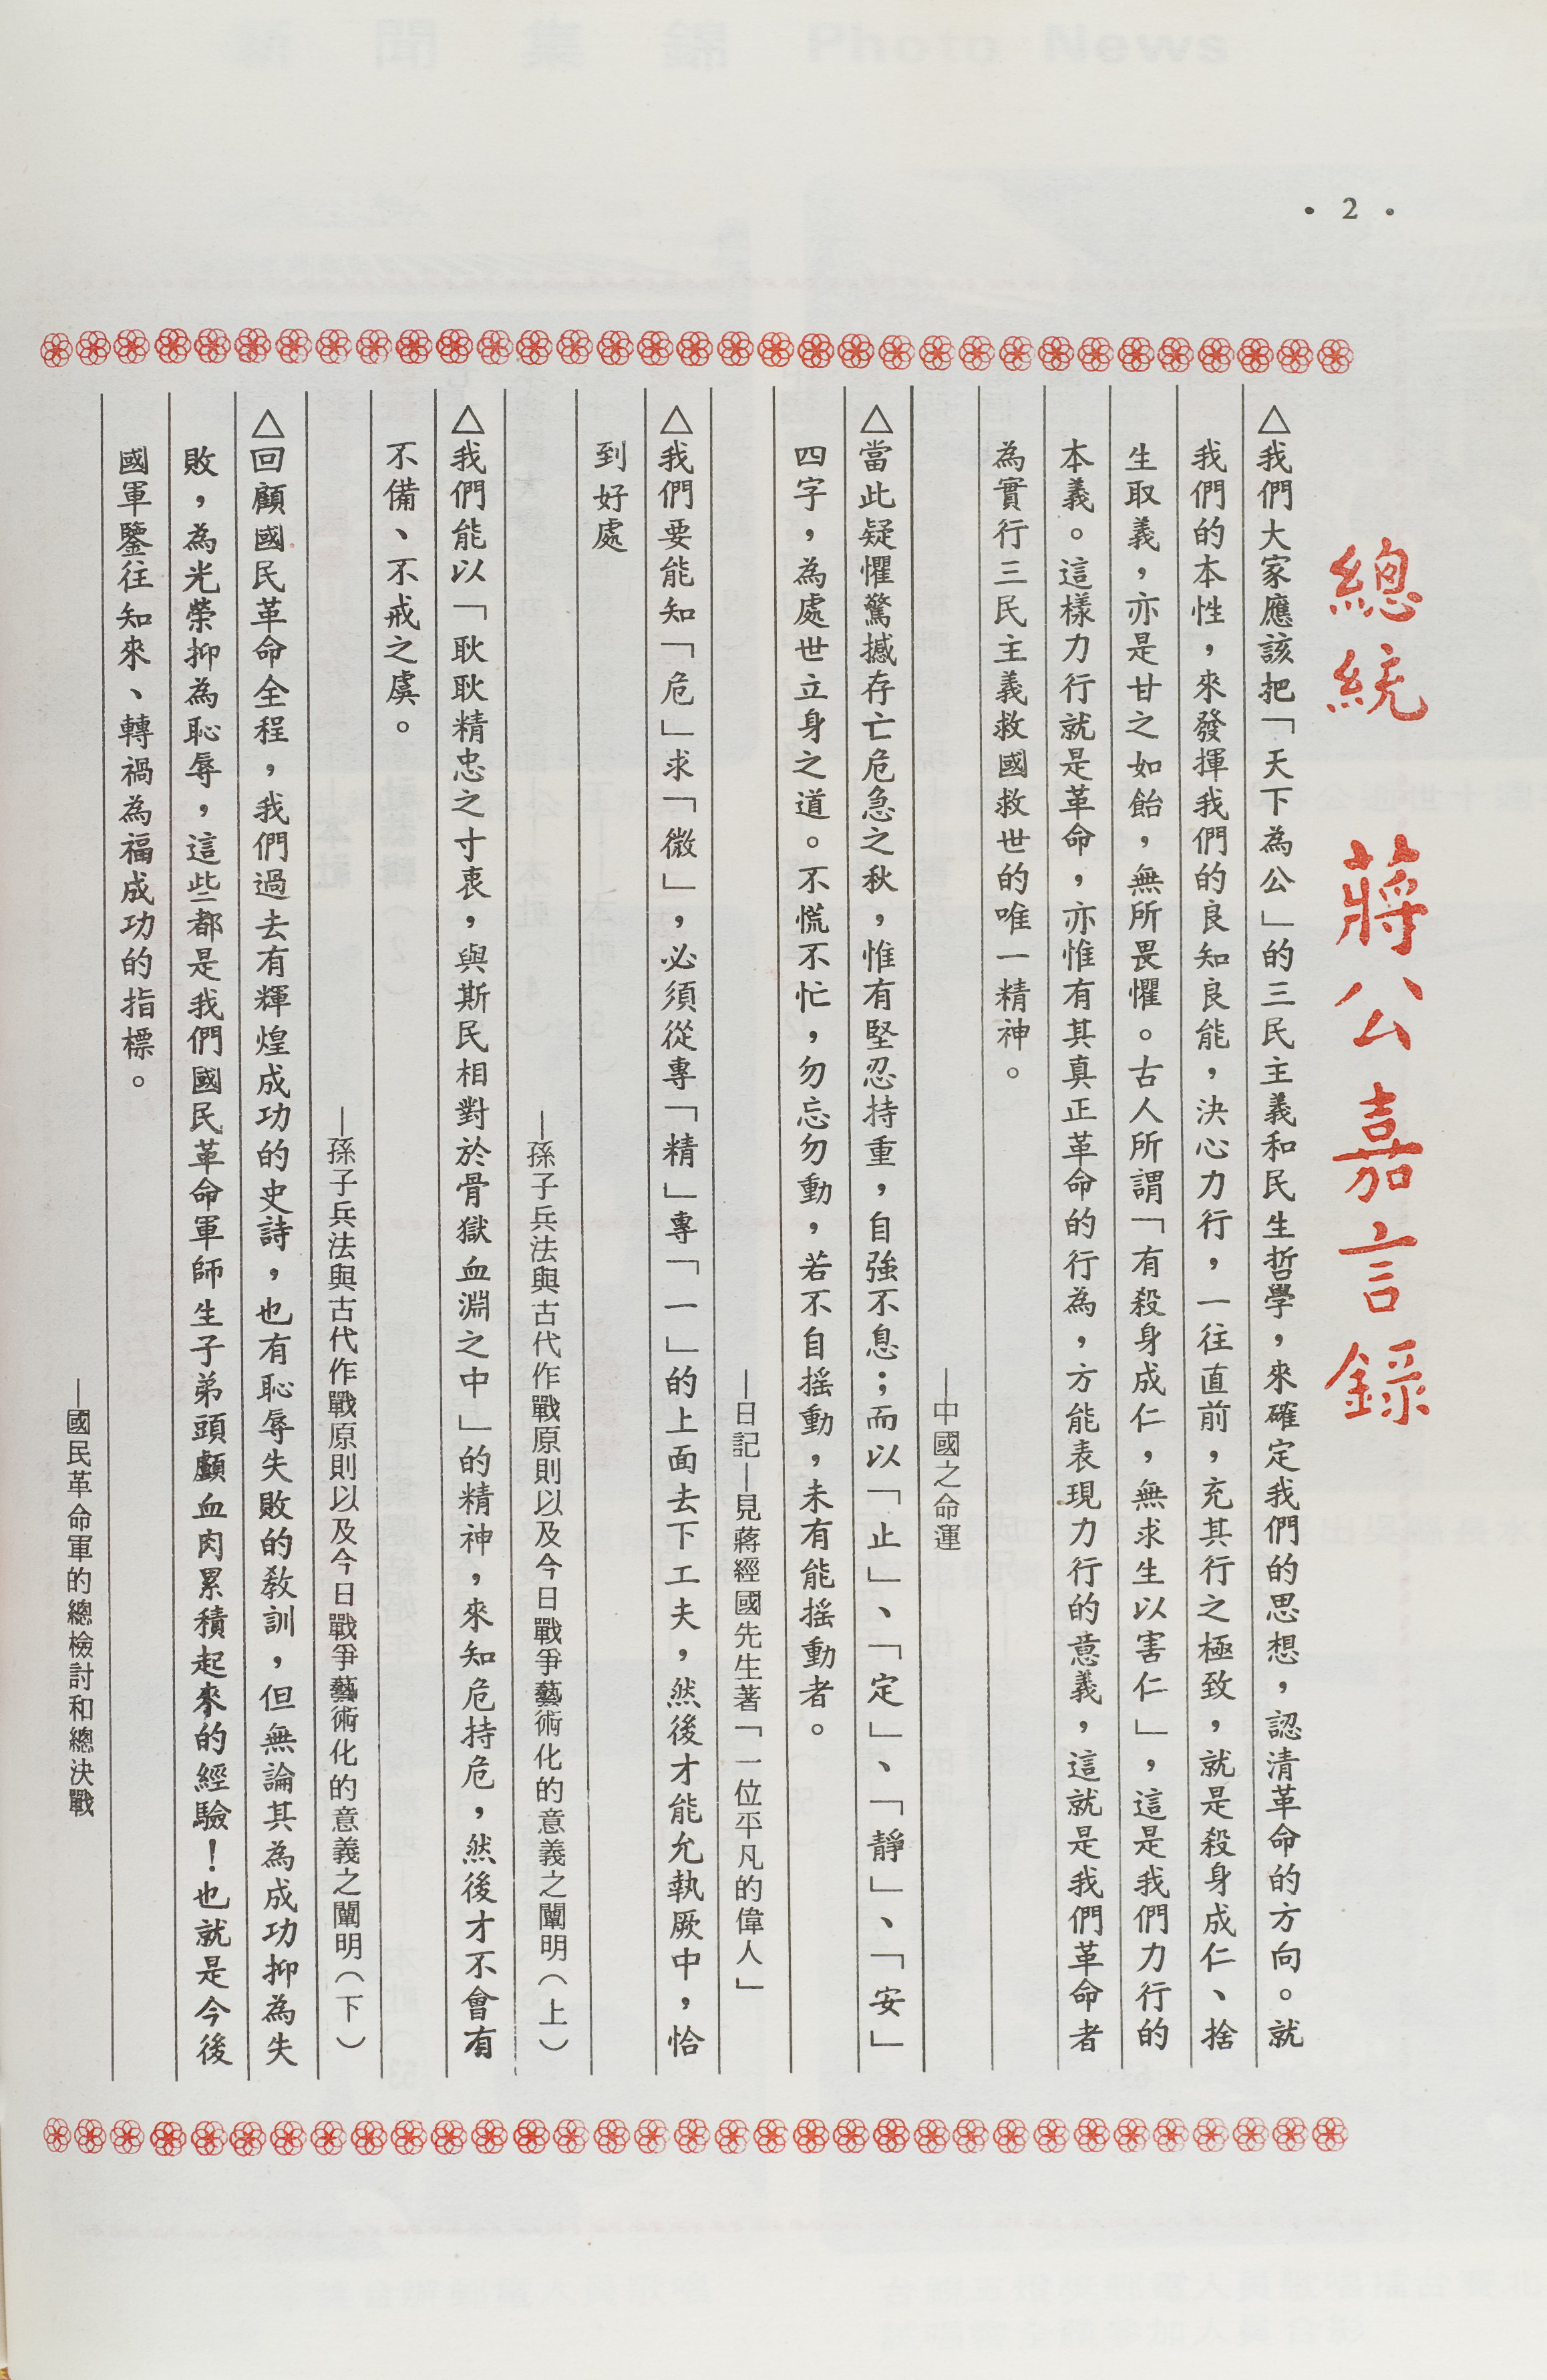 • 2 •
總統 蔣公嘉言錄
△我們大家應該把「天下為公」的三民主義和民生哲學，來確定我們的思想，認清革命的方向。就
我們的本性，來發揮我們的良知良能，決心力行，一往直前，充其行之極致，就是殺身成仁、捨
生取義，亦是甘之如飴，無所畏懼。古人所謂「有殺身成仁，無求生以害仁」，這是我們力行的
本義。這樣力行就是革命，亦惟有其真正革命的行為，方能表現力行的意義，這就是我們革命者
為實行三民主義救國救世的唯一精神。
—中國之命運
△當此疑懼驚撼存亡危急之秋，惟有堅忍持重，自強不息；而以「止」、「定」、「靜」、「安」
四字，為處世立身之道。不慌不忙，勿忘勿動，若不自搖動，未有能搖動者。
—日記—見蔣經國先生著「一位平凡的偉人」
△我們要能知「危」求「微」，必須從專「精」專「一」的上面去下工夫，然後才能允執厥中，恰
到好處
—孫子兵法與古代作戰原則以及今日戰爭藝術化的意義之闡明（上）
△我們能以「耿耿精忠之寸衷，與斯民相對於骨獄血淵之中」的精神，來知危持危，然後才不會有
不備、不戒之虞。
—孫子兵法與古代作戰原則以及今日戰爭藝術化的意義之闡明（下）
△回顧國民革命全程，我們過去有輝煌成功的史詩，也有恥辱失敗的教訓，但無論其為成功抑為失
敗，為光榮抑為恥辱，這些都是我們國民革命軍師生子弟頭顱血肉累積起來的經驗！也就是今後
國軍鑒往知來、轉禍為福成功的指標。
—國民革命軍的總檢討和總決戰